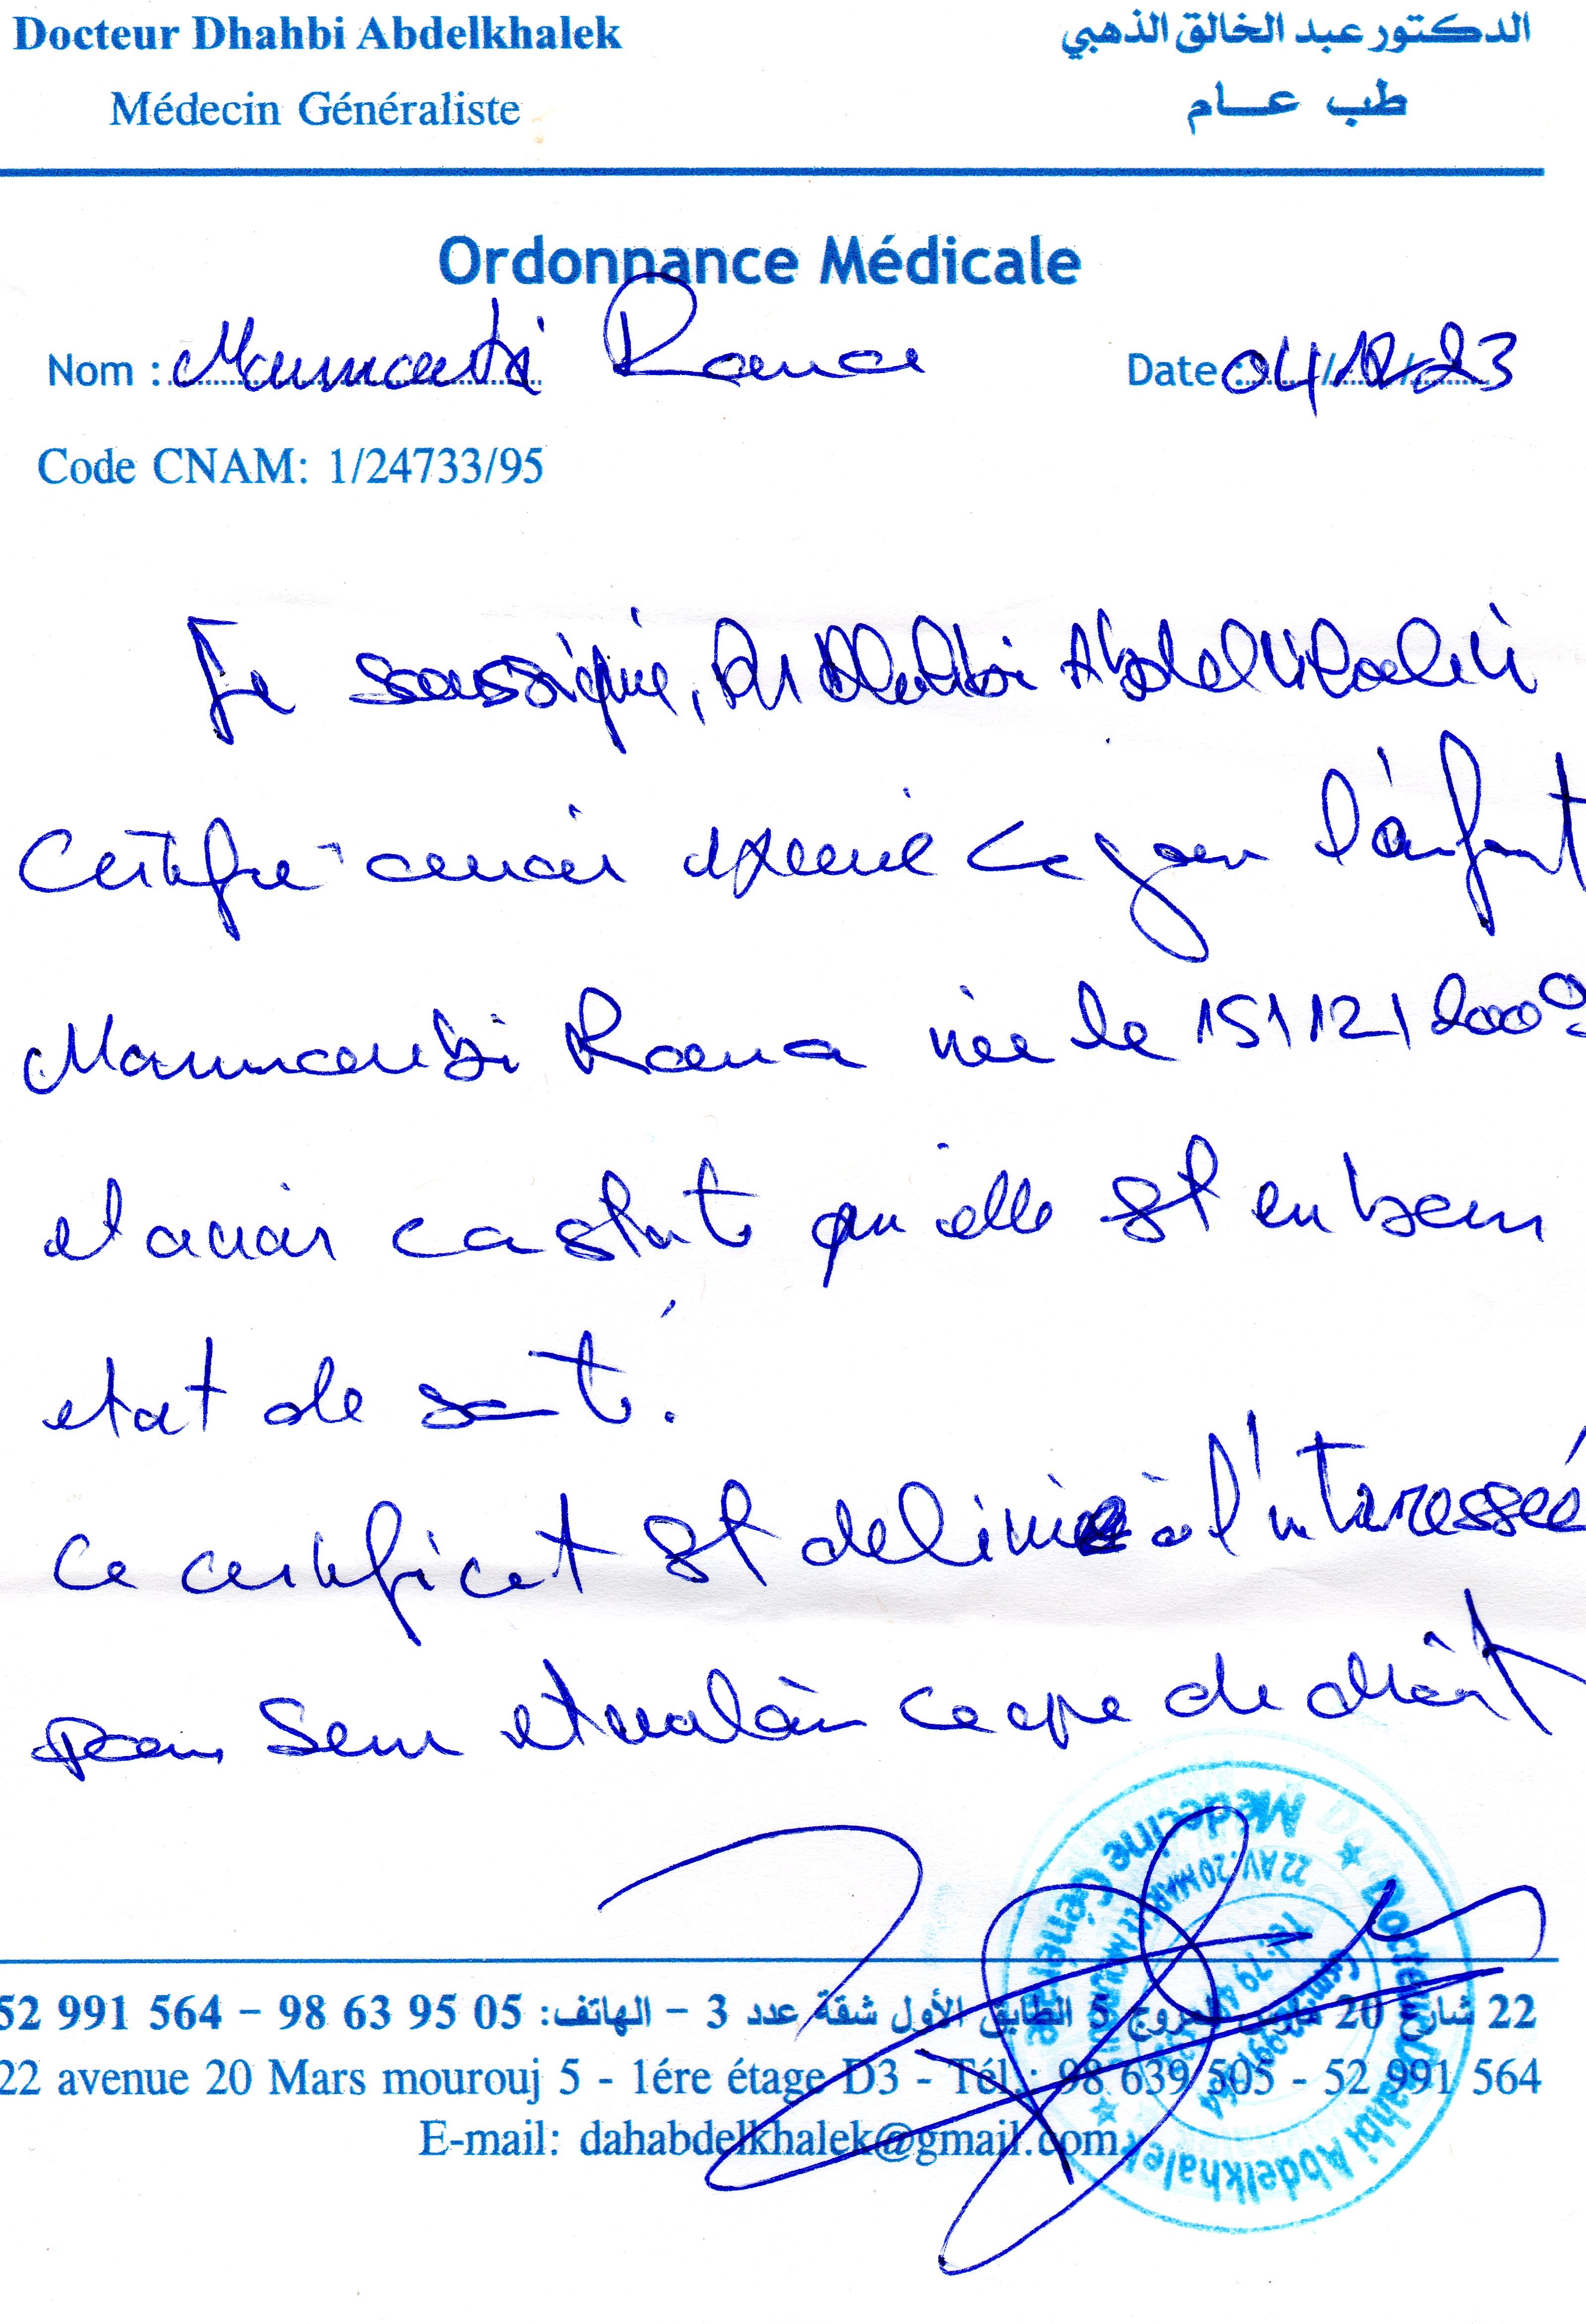 Docteur Dhahbi Abdelkhalek
الدكتور عبد الخالق الذهبي
Médecin Généraliste
طب عـــام
Ordonnance Médicale
Nom : Rana
Date : 04/12/23
Code CNAM: 1/24733/95
Je soussigné, Dr Dhahbi Abdelkhalek
Certifie avoir examiné ce jour l'enfant
Rana née le 15/12/200
et avoir constaté qu'elle est en bon
etat de santé.
Ce certificat est delivré à l'interessée
pour servir et valoir ce que de droit
22 شارع 20 مارس المروج 5 الطابق الأول شقة عدد 3 – الهاتف: 05 95 63 98 – 564 991 52
22 avenue 20 Mars mourouj 5 - 1ére étage D3 - Tél.: 98 639 505 - 52 991 564
E-mail: dahabdelkhalek@gmail.com
Docteur Dhahbi Abdelkhalek
Médecine Générale
22 AV. 20 MARS